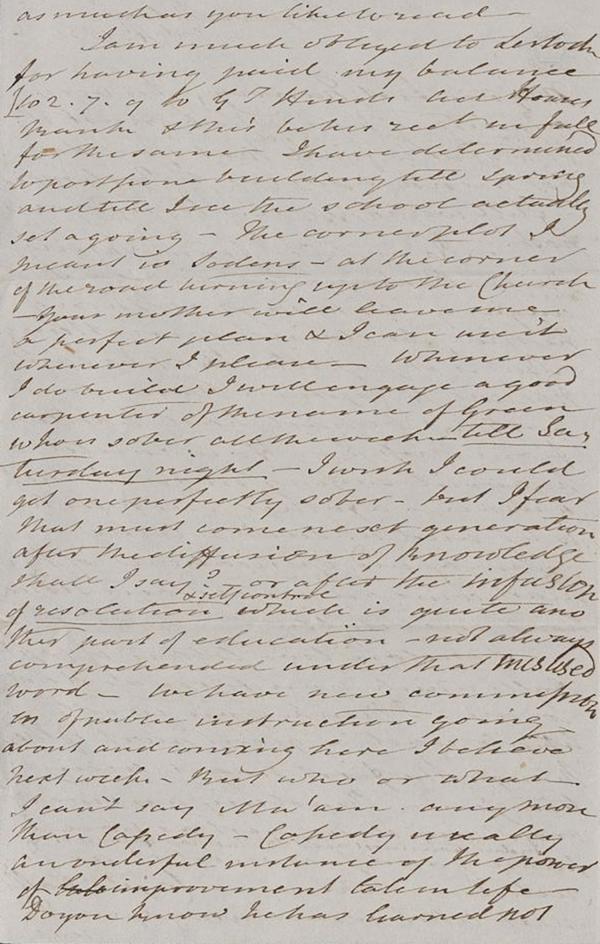 as much as you like to read –
I am much obliged to Lestock
for having paid my balance
£102.7.9 to G T Hinds
& this better rect in full
for the same – I have determined
to postpone building till spring
and till I see the school actually
set agoing – The corner plot I
meant is Sodens – at the corner
of the road turning up to the Church
– Your mother will leave me
a perfect plan & I can use it
whenever I please – Whenever
I do build I will engage a good
carpenter of the name of Green
who is sober all the week – till Sa-
turday night – I wish I could
get one perfectly sober – but I fear
that must come next generation
after the diffusion of knowledge
shall I say? or after the infusion
& self control
of resolution which is quite ano
ther part of education – not always
comprehended under that misused
word – We have new commission
ers of public instruction going
about and coming here I believe
next week – But who or what
I can't say Ma'am any more
than Cassidy – Cassidy really
a wonderful instance of the power
of late improvement late in life –
Do you know he has learned not